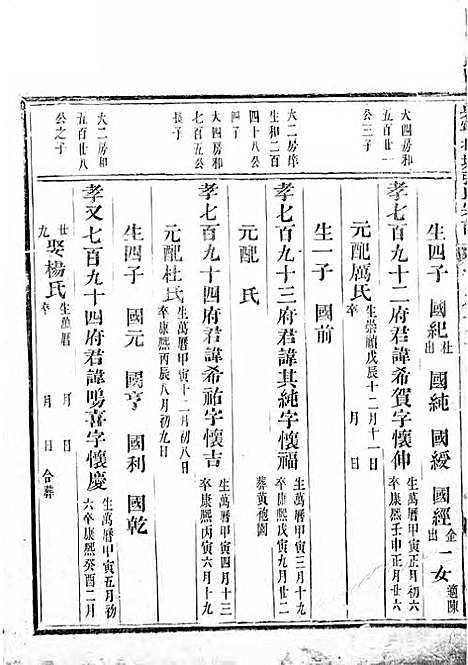 生四子　國紀杜出　國純　國綬　國經金出　一女適陳
大四房和五百廿一公三子
孝七百九十二府君諱希賀字懷仲　生萬曆甲寅正月初六卒康熙壬申正月廿六
元配厲氏　生崇禎戊辰十二月十一日卒　　月　日
生一子　國前
大二房庠生和二百四十八公子
孝七百九十三府君諱其純字懷福　生萬曆甲寅三月十九卒康熙戊寅六月十九葬黄袍園
元配　氏
大四房和七百五公長子
孝七百九十四府君諱希祐字懷吉　生萬曆甲寅四月十三卒康熙丙寅六月十九
元配杜氏　生萬曆甲寅十二月初八日卒康熙丙辰八月初九日
生四子　國元　國亨　國利　國乾
大二房和五百廿八公之子
孝又七百九十四府君諱鳴喜字懷慶　生萬曆甲寅五月初六卒康熙癸酉二月
廿九　娶楊氏　生萬曆　月　日卒　月　日　合葬